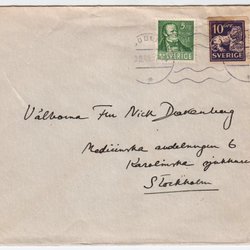 5
SVERIGE
10
SVERIGE
Välborna Fru Nick Drakenberg
Medicinska avdelningen 6
Karolinska sjukhuset
Stockholm